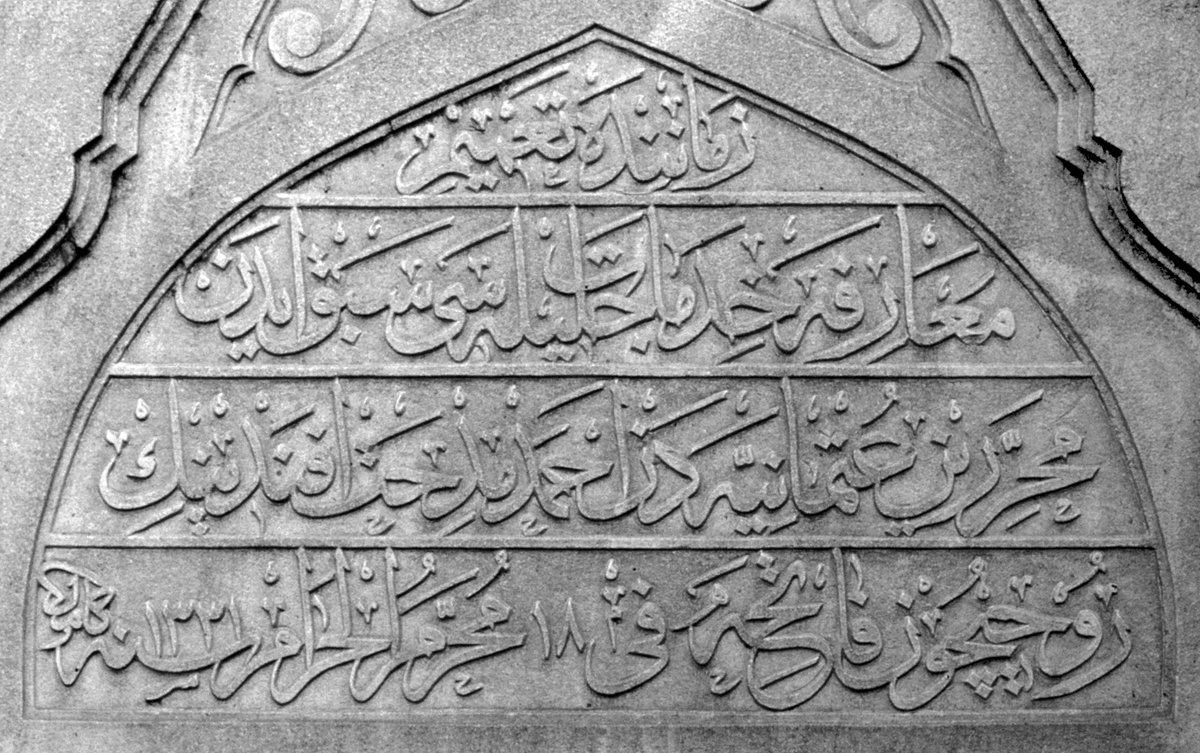 زماننده تعميم
معارفه خدمات جليله سی سبق ايدن
محررين عثمانيه دن احمد مدحت افندينك
روحيچون فاتحه فی ١٨ محرم الحرام سنه ١٣٣١